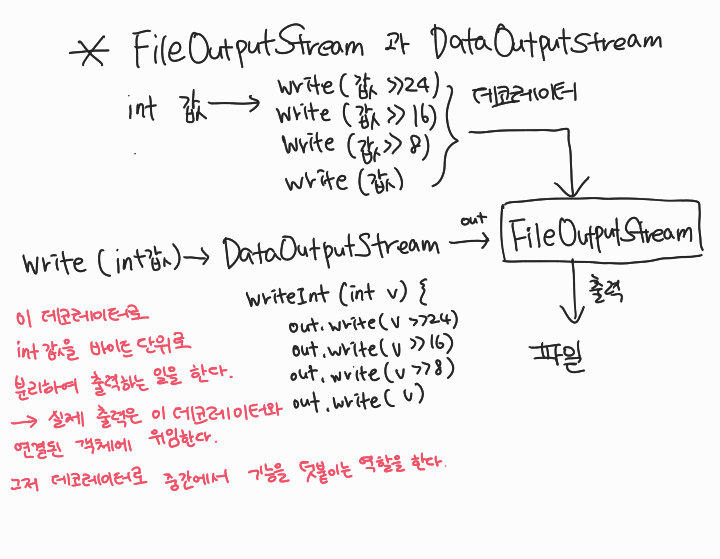 * FileOutputStream 과 DataOutputStream
int 값 → write(값 >>24)
write (값 >> 16)
write (값 >> 8)
write (값)
데코레이터
write (int값) → DataOutputStream
out
→ FileOutputStream
출력
파일
writeInt (int v) {
out.write(v >>24)
out.write(v >>16)
out.write(v >>8)
out.write( v)
이 데코레이터로
int 값을 바이트 단위로
분리하여 출력하는 일을 한다.
→ 실제 출력은 이 데코레이터와
연결된 객체에 위임한다.
그저 데코레이터로 중간에서 기능을 덧붙이는 역할을 한다.